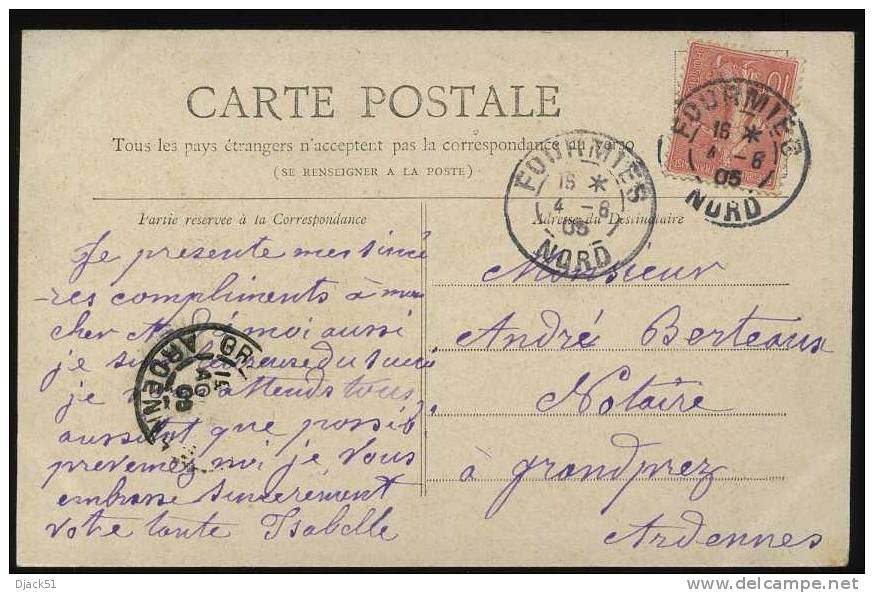 CARTE POSTALE
Tous les pays étrangers n'acceptent pas la correspondance au verso
(SE RENSEIGNER A LA POSTE)
Partie reservee à la Correspondance
Adresse du Destinataire
Je presente mes sincè
-res compliments à mon
cher moi aussi
je du
je attends tous
aussitot que possib
prevenez moi je vous
embrasse sincerement
Votre tante Isabelle
Monsieur
André Berteaux
Notaire
à grandprez
Ardennes
FOURMIES
16 *
4 - 6
05
NORD
FOURMIES
16 *
4 - 6
05
NORD
10
GR
ARDENN
Djack51
delcampe.net